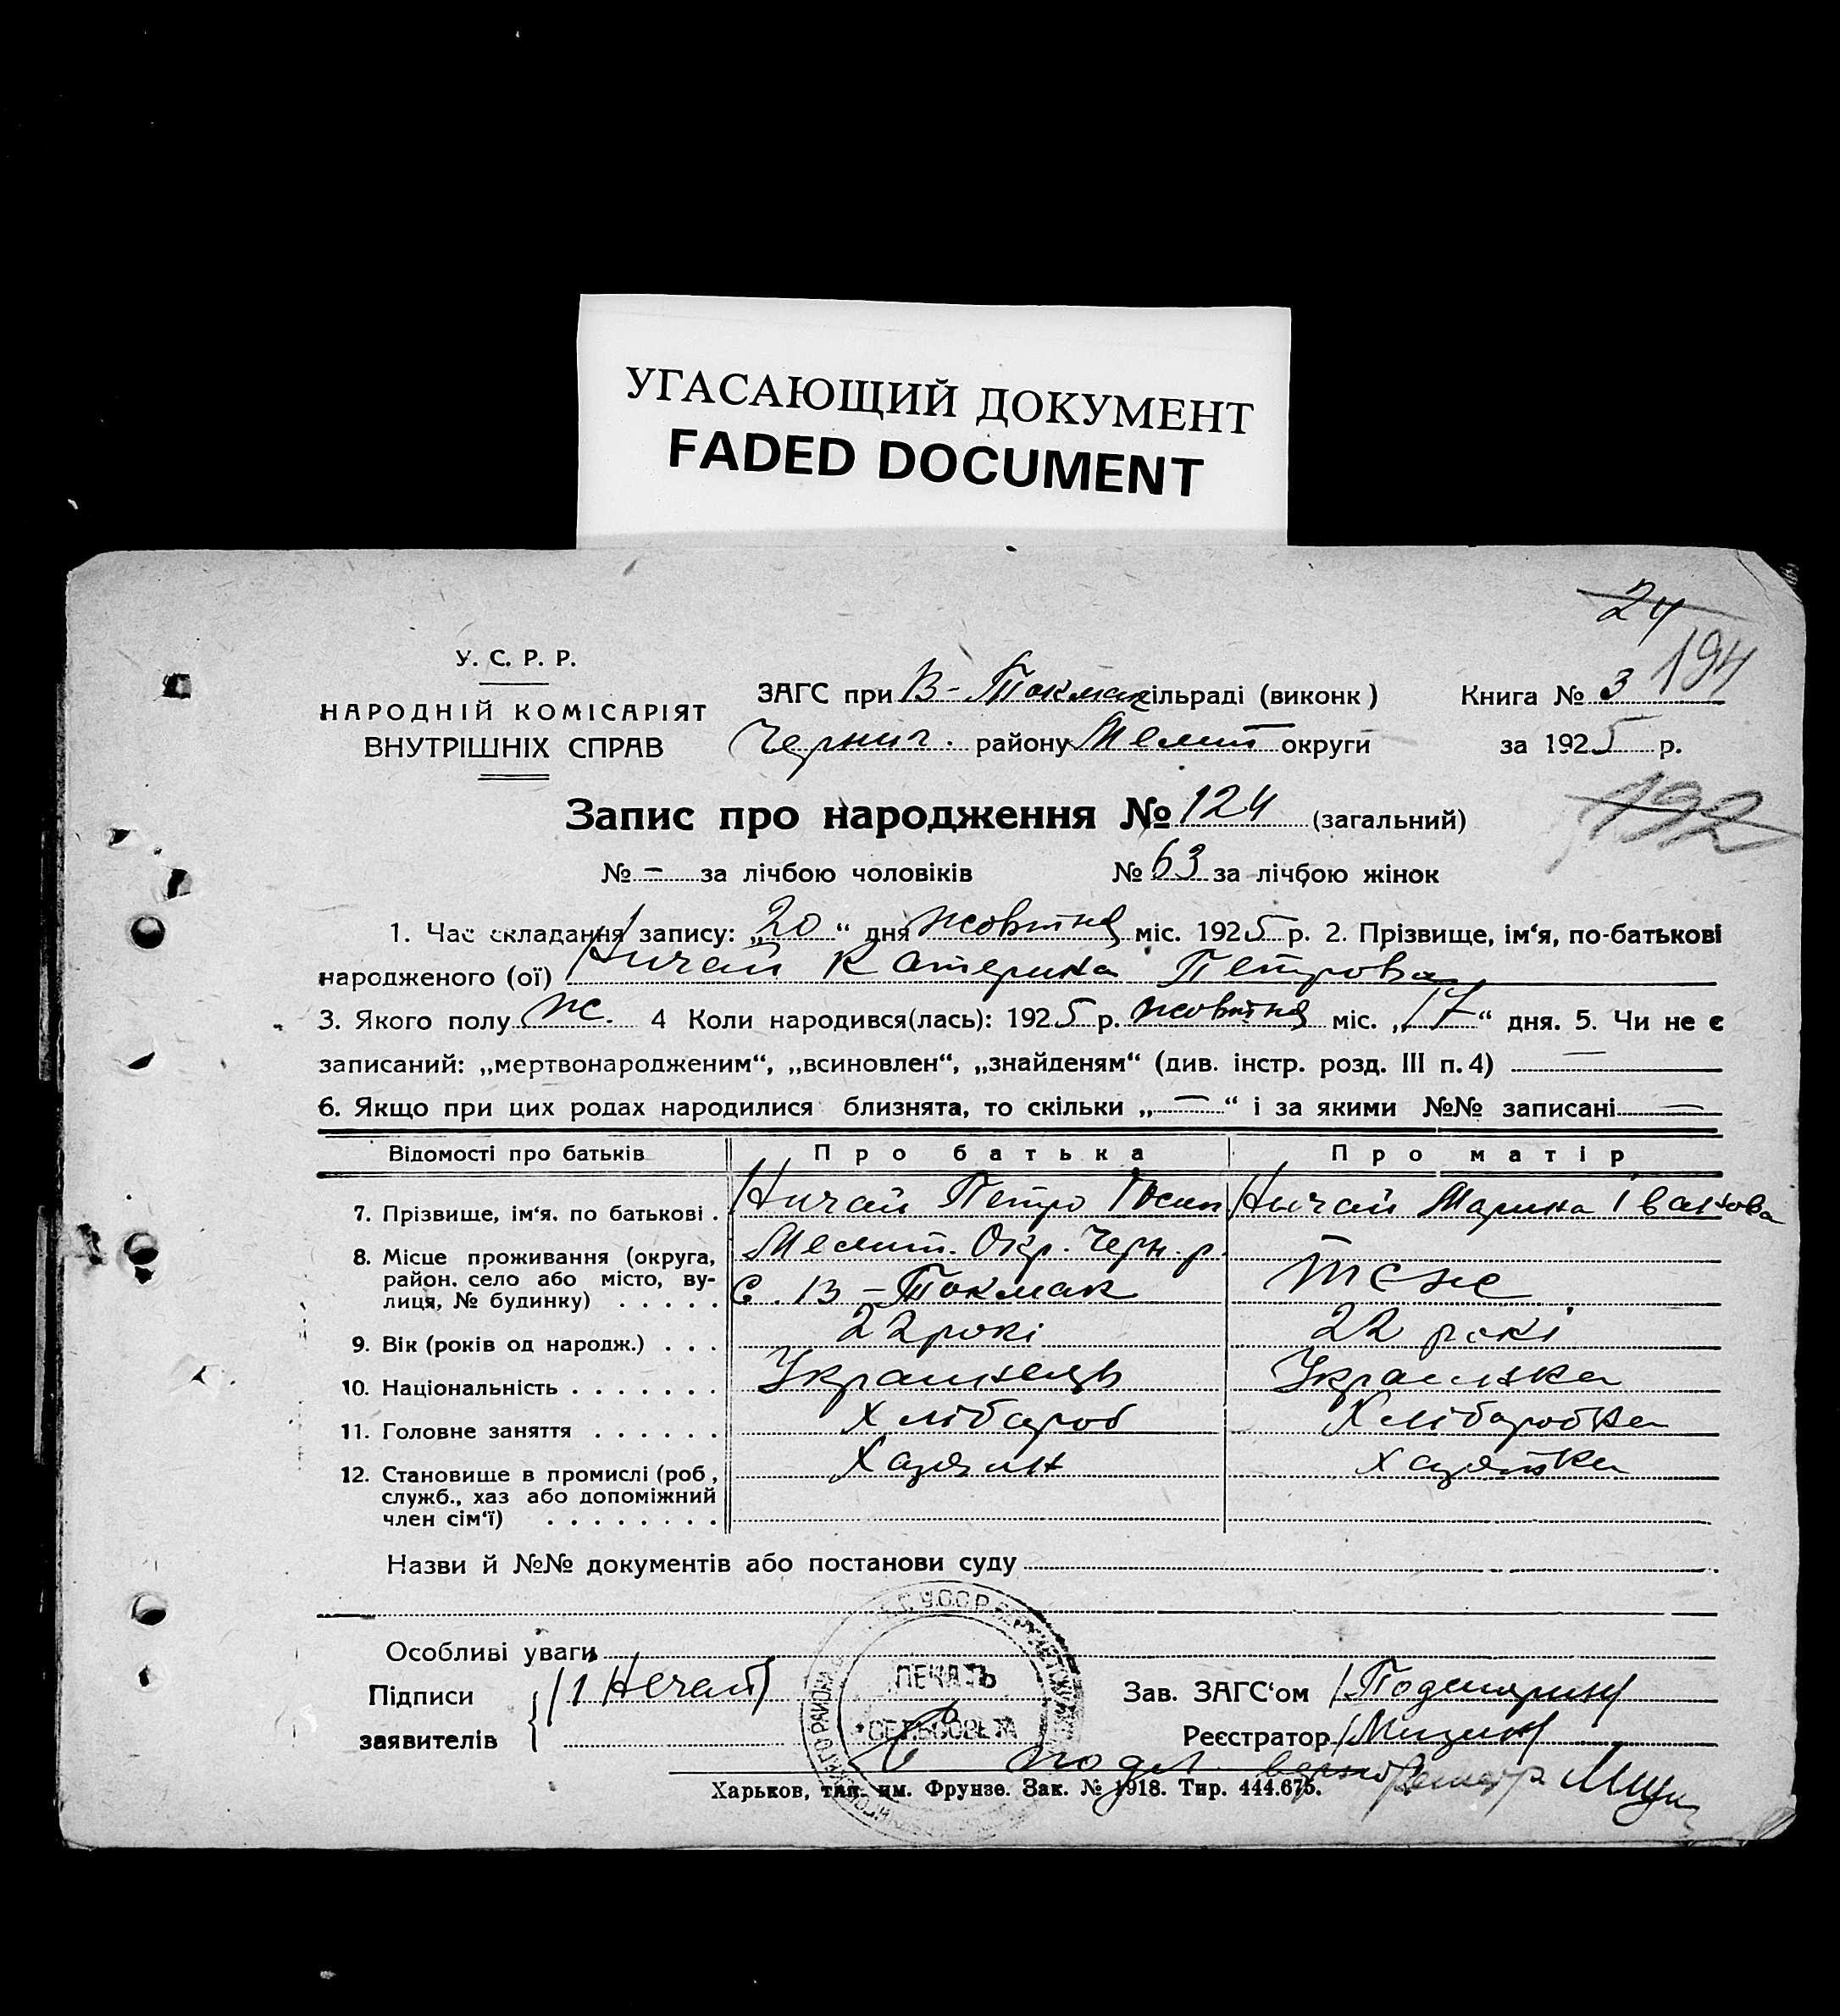 УГАСАЮЩИЙ ДОКУМЕНТ
FADED DOCUMENT
24
194
У. С. Р. Р.
НАРОДНІЙ КОМІСАРІЯТ
ВНУТРІШНІХ СПРАВ
ЗАГС при В-Токмак сільраді (виконк )
Книга № 3
Черниг. району Мелит округи
за 1925 р.
192
Запис про народження № 124 (загальний)
№ – за лічбою чоловіків № 63 за лічбою жінок
1. Час складання запису: „20“ дня жовтня міс. 1925 р. 2. Прізвище, ім‘я, по-батькові
народженого (ої) Ничай Катерина Петрова
3. Якого полу ж. 4 Коли народився(лась): 1925 р. жовтня міс. „17“ дня. 5. Чи не є
записаний: „мертвонародженим“, „всиновлен“, „знайденям“ (див. інстр. розд. III п. 4) —
6. Якщо при цих родах народилися близнята, то скільки „—“ і за якими №№ записані —
Відомості про батьків Про батька Про матір
7. Прізвище, ім‘я. по батькові . Ничай Петро Йосип Ничай Марина Іванова
8. Місце проживання (округа, район. село або місто, вулиця, № будинку) . . . . . Мелит. Окр. Черн. р.
с. В-Токмак теж
9. Вік (років од народж.) . . . 22 рокі 22 рокі
10. Національність . . . . . . . Украинець Украинка
11. Головне заняття . . . . . . Хлібароб Хлібаробка
12. Становище в промислі (роб, служб., хаз або допоміжний член сім‘ї) . . . . . . . . Хазяин Хазяйка
Назви й №№ документів або постанови суду
Особливі уваги
Підписи
заявителів
/1 Нечай/
ПЕЧАТЬ
СЕЛЬСОВЕТА
Зав. ЗАГС‘ом
Реєстратор /Мизин/
Харьков, тип. им. Фрунзе. Зак. № 1918. Тир. 444.675.